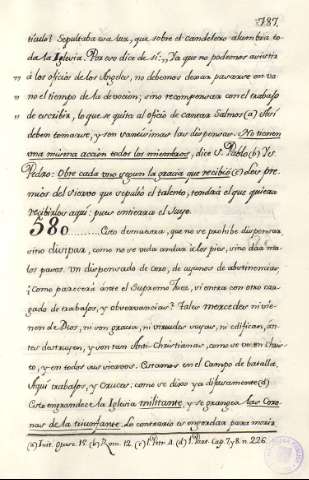 187.
ticulo? Sepultaba esa luz, que sobre el candelero alumbra to-
da la Iglesia. Por eso dice de sí: Ya que no podemos asistir
à los oficios de los Angeles, no debemos dexar pasarse en va-
no el tiempo de la devocion; sino recompensar con el trabajo
de escribir, lo que se quita al oficio de cantar Salmos (a) Asi
deben tomarse, y son vanissimas las dispensas. No tienen
una misma acción todos los miembros, dice S. Pablo (b) Y S.
Pedro: Obre cada uno segun la gracia que recibió (c)
mios del siervo que sepultó el talento, tendrá el que quiera
recibirlos aqui; pues entierra el suyo.
580 Esto demuestra, que no se prohibe dispensar,
sino disipar, como no se veda andar à los pies, sino dár ma-
los pasos. Un dispensado de Coro, de ayunos de abstinencias
¿Como parecerá ante el Supremo Juez, si entra con otro car-
gado de trabajos, y observancias? Tales mercedes ni vie-
nen de Dios, ni son gracia, ni virtudes suyas, ni edifican, an-
tes destruyen, y son tan Anti-Christianas, como se vé en Chris-
to, y en todos sus siervos. Estamos en el Campo de batalla.
Aqui trabajos, y Cruces, como se dixo ya difusamente (d)
Esto engrandece la Iglesia militante, y se grangea las Coro-
nas de la triunfante. Lo contrario es engordar para morir
(b) Rom. 12. (c) Petr. 4. (d) Cap. 7 y 8. n. 226.